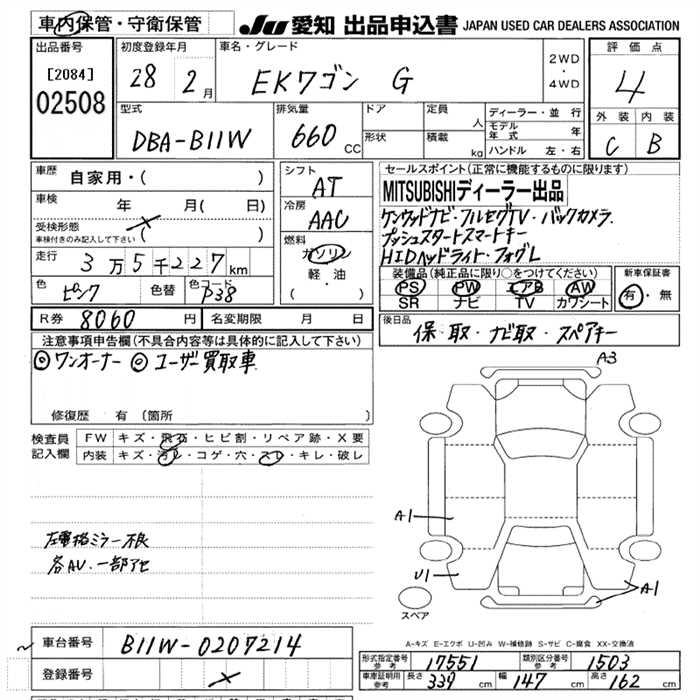 車内保管・守衛保管
JU 愛知 出品申込書 JAPAN USED CAR DEALERS ASSOCIATION
出品番号
[2084]
02508
初度登録年月
28 2月
車名・グレード
EKワゴン G
2WD
・
4WD
評価点
4
型式
DBA-B11W
排気量
660 CC
ドア
形状
定員 人
積載 kg
ディーラー・並行
モデル年式 年
ハンドル 左・右
外装 内装
C B
車歴 自家用・( )
車検 年 月( 日)
受検形態
車検付きのみ記入して下さい ( )
走行 3万5千227km
色 ピンク 色替 色コード P38
シフト
AT
冷房
AAC
燃料
ガソリン
軽・油
( )
セールスポイント(正常に機能するものに限ります)
MITSUBISHIディーラー出品
ケンウッドナビ・フルセグTV・バックカメラ.
プッシュスタートスマートキー
HIDヘッドライト・フォグL
装備品(純正品に限り○をつけてください)
PS PW エアB AW
SR ナビ TV カワシート
新車保証書
有・無
R券 8060円 名変期限 月 日
後日品
保・取・ナビ取・スペアキー
注意事項申告欄(不具合内容等は具体的に記入して下さい)
◎ワンオーナー ◎ユーザー買取車
修復歴 有(箇所 )
検査員記入欄
FW キズ・飛石・ヒビ割・リペア跡・X要
内装 キズ・汚レ・コゲ・穴・スレ・キレ・破レ
A3
A1
U1
A1
スペア
左電格ミラー不良
各AU.一部アセ
A-キズ E-エクボ U-凹み W-補修跡 S-サビ C-腐食 XX-交換済
車台番号 B11W-0207214
登録番号
形式指定番号参考 17551 類別区分番号参考 1503
車庫証明用参考 長さ 339cm 幅 147cm 高さ 162cm